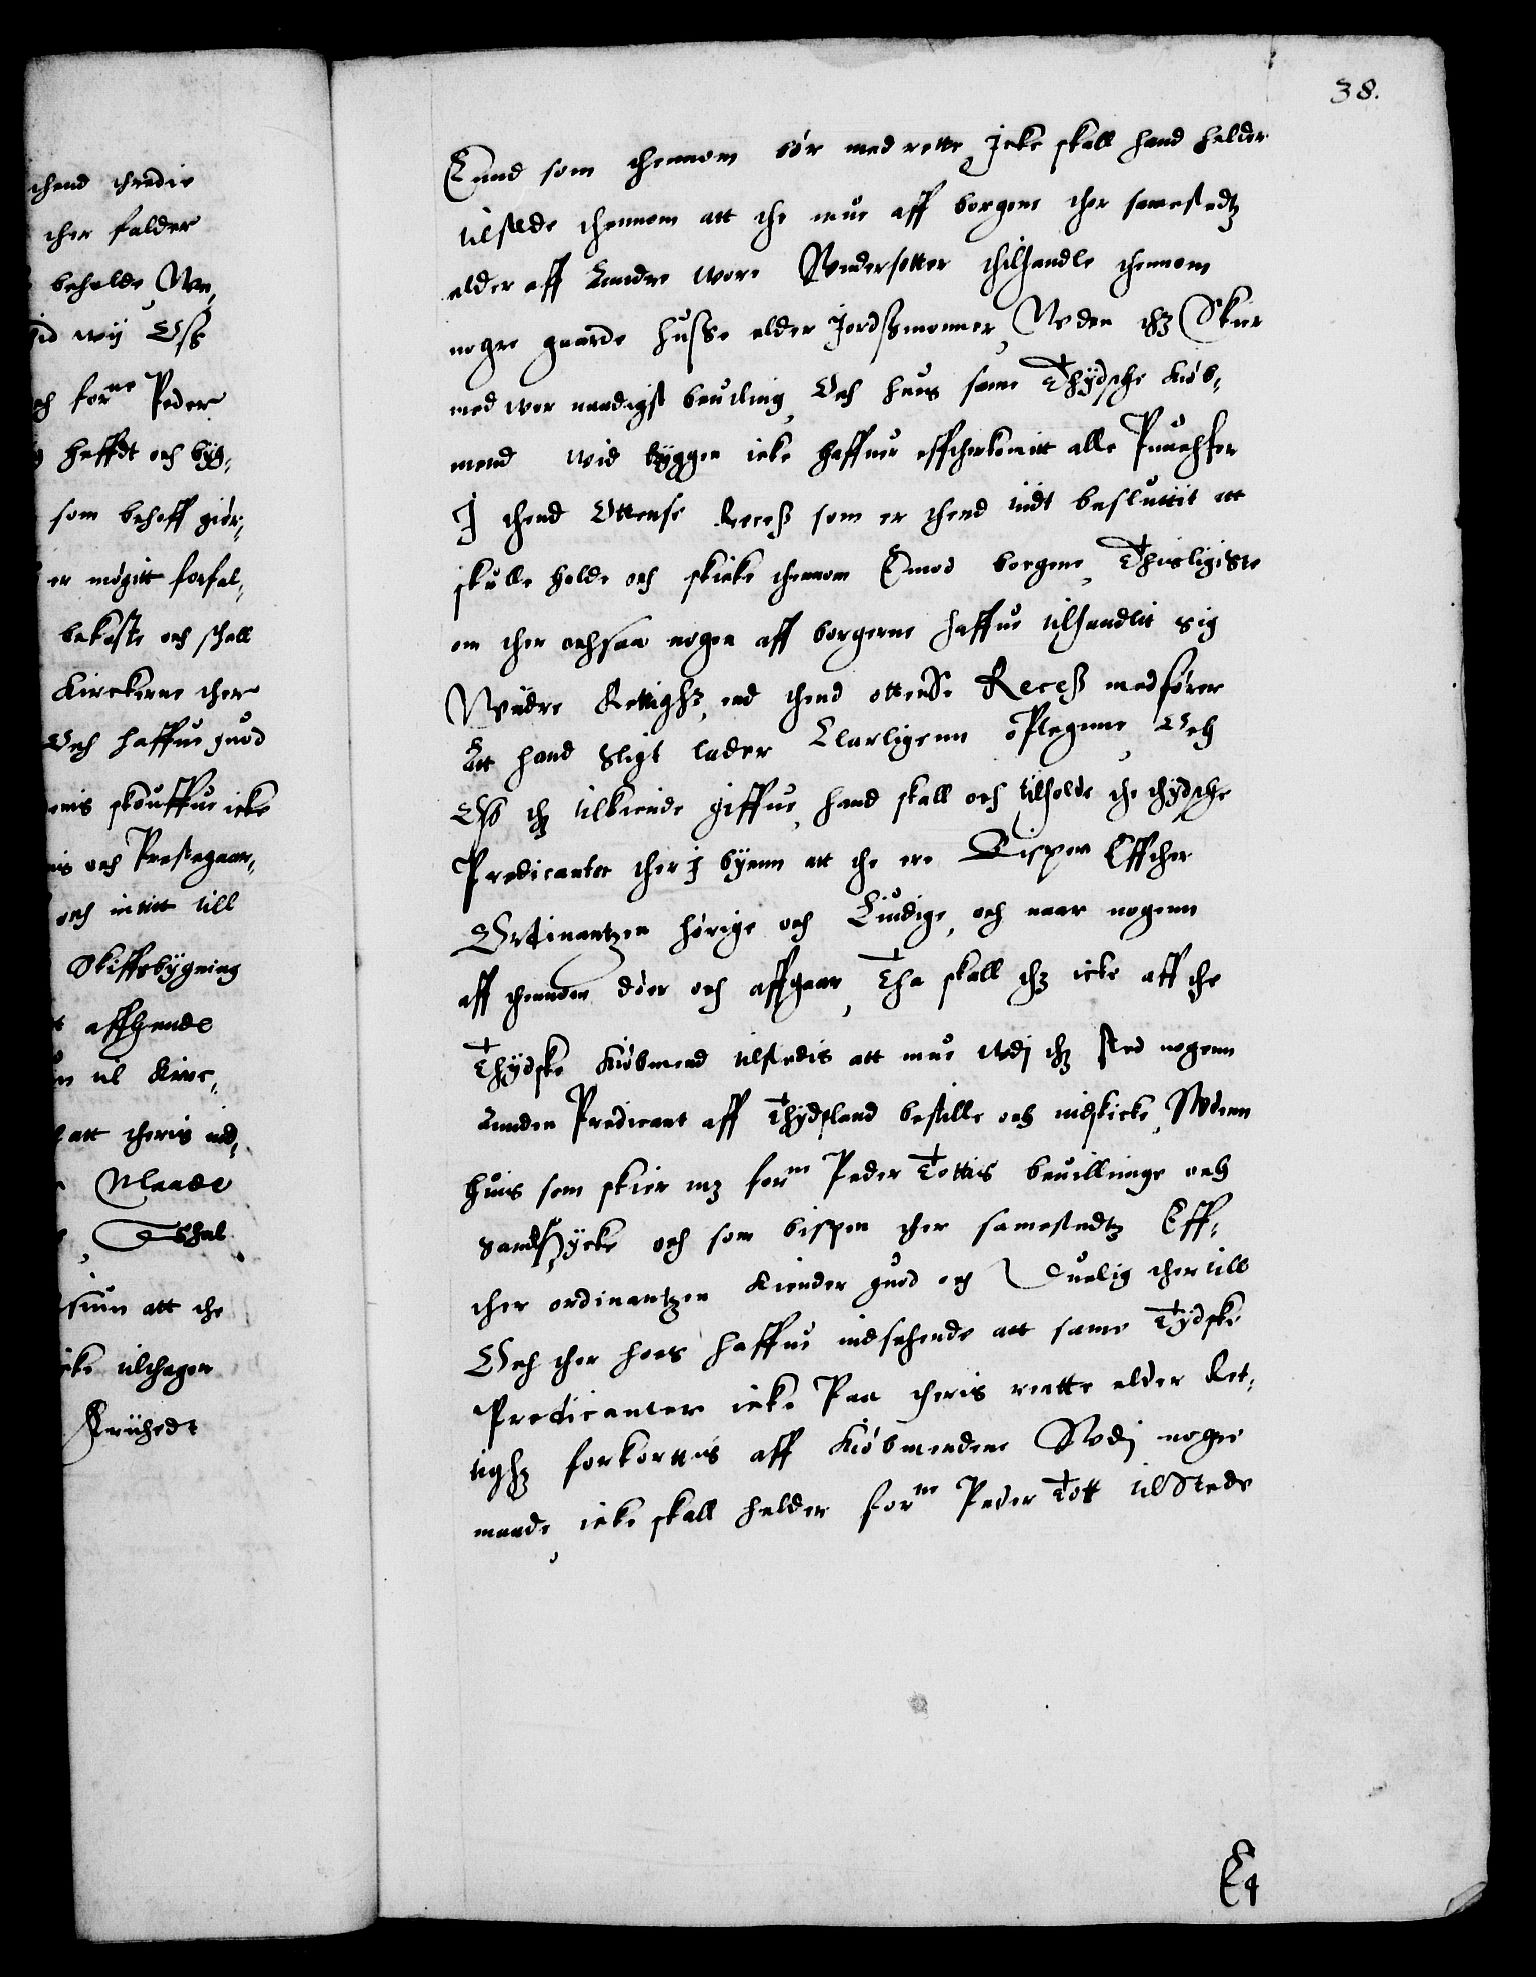 38.
thend tredie
ther falder
beholde, Mn,
id wij Oss
och forne Peder
hafft och byg,
som behoff giør,
er møgitt forfal,
bekoste och schall
Kirckerne ther
Och haffue guod
skouffue icke
och Prestegaar,
och intitt till
Skiffsbygning
affhende
til Kirc,
att theris ind,
Maade
Thal
att the
icke tilthager
Friihedt
Emod som thennom bør med rette, Icke skall hand helder
tilstede thennom att the mue aff borgene ther samestedtz
elder aff Andre wore Wndersotter thilhandle thennom
nogre gaarde husse elder Jordssmonner, Wden thz Skier
med wor naadigst beuiling, Och huis same Thydsche Kiøb,
mend wid bryggen icke haffuer efftherkomitt alle Punchter
I thend Ottense Recess som er thend tiidt besluttit att
skulle holde och skicke thennom Emod borgene, Thisligiste
om ther ochsaa nogen aff borgerne haffue tilhandlit sig
Wiidre Rettighz, end thend ottense Recess medfører
Att hand sligt lader Clarligenn oplegnne, Och
Oss thz tilkiende giffue, hand skall och tilholde the thydsche
Predicanter ther I byenn att the ere Bispen Effther
Ordinantzen hørige och Liudige, och naar nogenn
aff thennom døer och affgaar, Tha skall thz icke aff the
Thydske Kiøbmend tilstedis att mue wdj thz sted nogenn
Anden Predicant aff Thydsland bestille och indskicke, Wdenn
huis som skier mz forne Peder Tottis beuillinge och
samdtycke och som bispen ther samestedtz Eff,
ther ordinantzen kiender guod och Duelig ther till
Och ther hoes haffue indseende att same Tydske
Predicanter icke Paa theris rentte elder Ret,
tighz forkorttis aff Kiøbmendene Wdj nogre
maade, icke skall helder forne Peder Tott tilstede